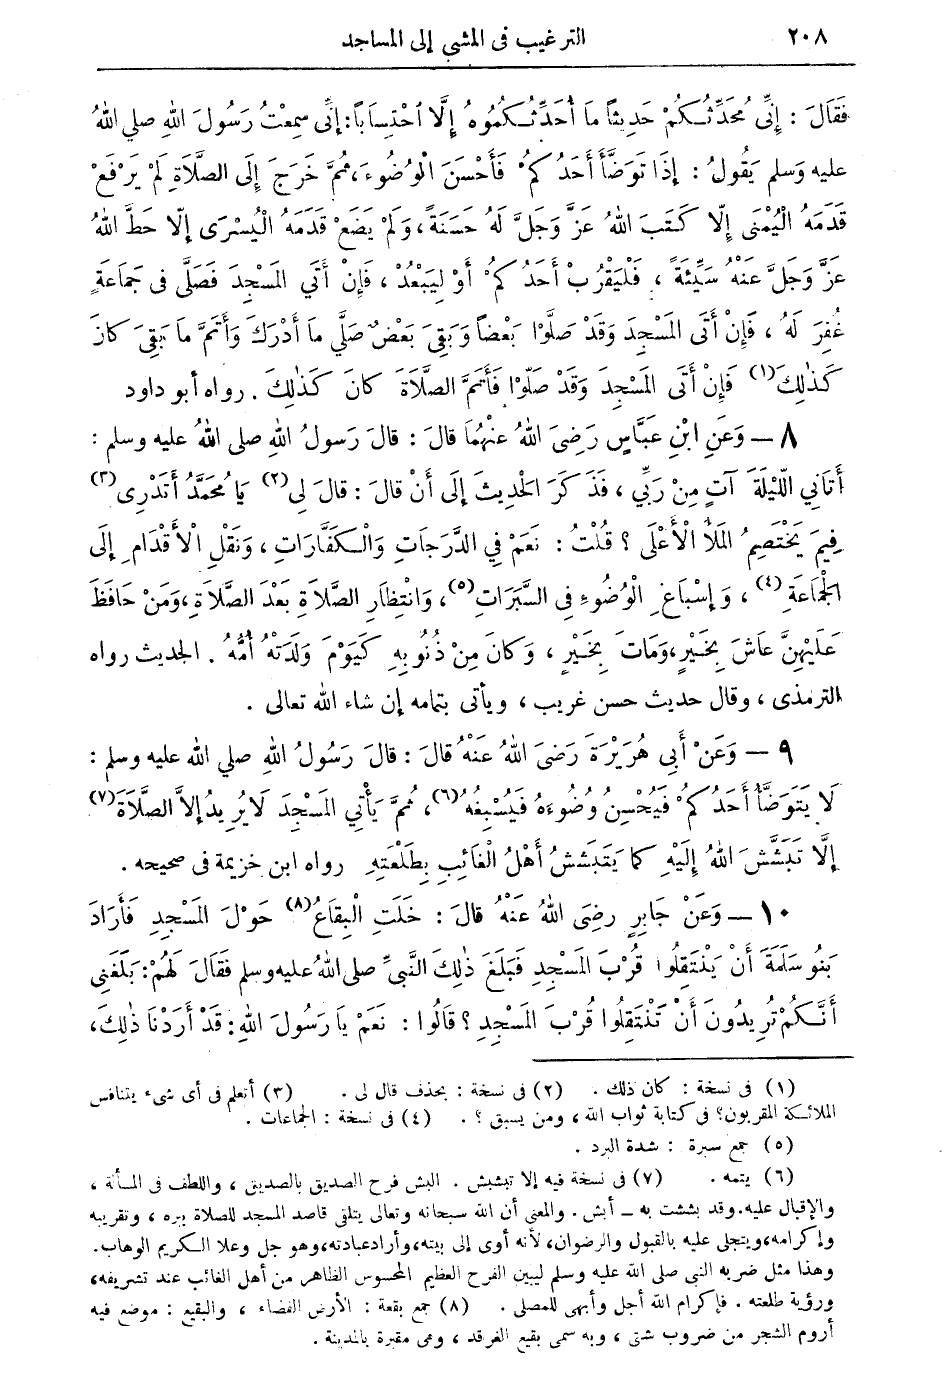 ٢٠٨ الترغيب فى المشي إلى المساجد
فَقَالَ : إِنِّى مُحَدِّثُكُمْ حَدِيثاً مَا أُحَدِّثُكُمُوهُ إِلَّا احْتِسَاباً: إِنِّى سَمِعْتُ رَسُولَ اللهِ صلى اللهُ
عليه وَسلم يَقُولُ : إِذَا تَوَضَّأَ أَحَدُكُمْ فَأَحْسَنَ الْوُضُوءَ، ثُمَّ خَرَجَ إِلَى الصَّلَاةِ لَمْ يَرْفَعْ
قَدَمَهُ الْيُمْنَى إِلَّا كَتَبَ اللهُ عَزَّ وَجَلَّ لَهُ حَسَنَةً، وَلَمْ يَضَعْ قَدَمَهُ الْيُسْرَى إِلَّا حَطَّ اللهُ
عَزَّ وَجَلَّ عَنْهُ سَيِّئَةً ، فَلْيَقْرُبْ أَحَدُكُمْ أَوْ لِيَبْعُدْ ، فَإِنْ أَتَي الْمَسْجِدَ فَصَلَّى فى جَمَاعَةٍ
غُفِرَ لَهُ ، فَإِنْ أَتَى الْمَسْجِدَ وَقَدْ صَلَّوْا بَعْضاً وَبَقِىَ بَعْضٌ صَلَّي مَا أَدْرَكَ وَأَتَمَّ مَا بَقِىَ كَانَ
كَذٰلِكَ(١) فَإِنْ أَتَى الْمَسْجِدَ وَقَدْ صَلَّوْا فَأَتَمَّ الصَّلَاةَ كانَ كَذٰلِكَ . رواه أبو داود
٨ — وَعَنِ ابْنِ عَبَّاسٍ رَضِىَ اللهُ عَنْهُمَا قَالَ : قَالَ رَسولُ اللهِ صلى اللهُ عليه وسلم :
أَتَانِي اللَّيْلَةَ آتٍ مِنْ رَبِّي ، فَذَكَرَ الْحَدِيثَ إِلَى أَنْ قَالَ : قَالَ لِى(٢) يَا مُحَمَّدُ أَتَدْرِى(٣)
فِيمَ يَخْتَصِمُ الْمَلَأُ الْأَعْلَى ؟ قُلْتُ : نَعَمْ فِي الدَّرَجَاتِ وَالْكَفَّارَاتِ ، وَنَقْلِ الْأَقْدَامِ إِلَى
الْجَمَاعَةِ(٤) ، وَإِسْبَاغِ الْوُضُوءِ فِى السَّبَرَاتِ(٥)، وَانْتِظَارِ الصَّلَاةِ بَعْدَ الصَّلَاةِ، وَمَنْ حَافَظَ
عَلَيْهِنَّ عَاشَ بِخَيْرٍ، وَمَاتَ بِخَيْرٍ ، وَكَانَ مِنْ ذُنُوبِهِ كَيَوْمَ وَلَدَتْهُ أُمُّهُ . الحديث رواه
الترمذى ، وقال حديث حسن غريب ، ويأتى بتمامه إن شاء الله تعالى .
٩ — وَعَنْ أَبِى هُرَيْرَةَ رَضِىَ اللهُ عَنْهُ قَالَ : قَالَ رَسُولُ اللهِ صلي الله عليه وسلم :
لَا يَتَوَضَّأُ أَحَدُكُمْ فَيُحْسِنُ وُضُوءَهُ فَيُسْبِغُهُ(٦)، ثُمَّ يَأْتِي الْمَسْجِدَ لَا يُرِيدُ إِلَّا الصَّلَاةَ(٧)
إِلَّا تَبَشَّشَ اللهُ إِلَيْهِ كَمَا يَتَبَشَّشُ أَهْلُ الْغَائِبِ بِطَلْعَتِهِ رواه ابن خزيمة فى صحيحه .
١٠ — وَعَنْ جَابِرٍ رضِىَ اللهُ عَنْهُ قَالَ : خَلَتِ الْبِقَاعُ(٨) حَوْلَ الْمَسْجِدِ فَأَرَادَ
بَنُو سَلَمَةَ أَنْ يَنْتَقِلُوا قُرْبَ الْمَسْجِدِ فَبَلَغَ ذٰلِكَ النَّبىَّ صلى اللهُ عليه وسلم فَقَالَ لَهُمْ: بَلَغَنِى
أَنَّكُمْ تُرِيدُونَ أَنْ تَنْتَقِلُوا قُرْبَ الْمَسْجِدِ ؟ قَالُوا : نَعَمْ يَا رَسُولَ اللهِ: قَدْ أَرَدْنَا ذٰلِكَ،
(١) فى نسخة : كان ذلك . (٢) فى نسخة : بحذف قال لى . (٣) أتعلم فى أى شىء يتنافس
الملائكة المقربون؟ فى كتابة ثواب الله ، ومن يسبق ؟ . (٤) فى نسخة : الجماعات .
(٥) جمع سبرة : شدة البرد .
(٦) يتمه . (٧) فى نسخة فيه إلا تبشبش . البش فرح الصديق بالصديق ، واللطف فى المسألة ،
والإقبال عليه. وقد بششت به — أبش . والمعنى أن الله سبحانه وتعالى يتلقى قاصد المسجد للصلاة ببره ، وتقريبه
وإكرامه، ويتجلى عليه بالقبول والرضوان، لأنه أوى إلى بيته، وأراد عبادته، وهو جل وعلا الكريم الوهاب.
وهذا مثل ضربه النبى صلى الله عليه وسلم ليبين الفرح العظيم المحسوس الظاهر من أهل الغائب عند تشريفه،
ورؤية طلعته . فإكرام الله أجل وأبهى للمصلى . (٨) جمع بقعة : الأرض الفضاء ، والبقيع : موضع فيه
أروم الشجر من ضروب شتى ، وبه سمى بقيع الغرقد ، وهى مقبرة بالمدينة .